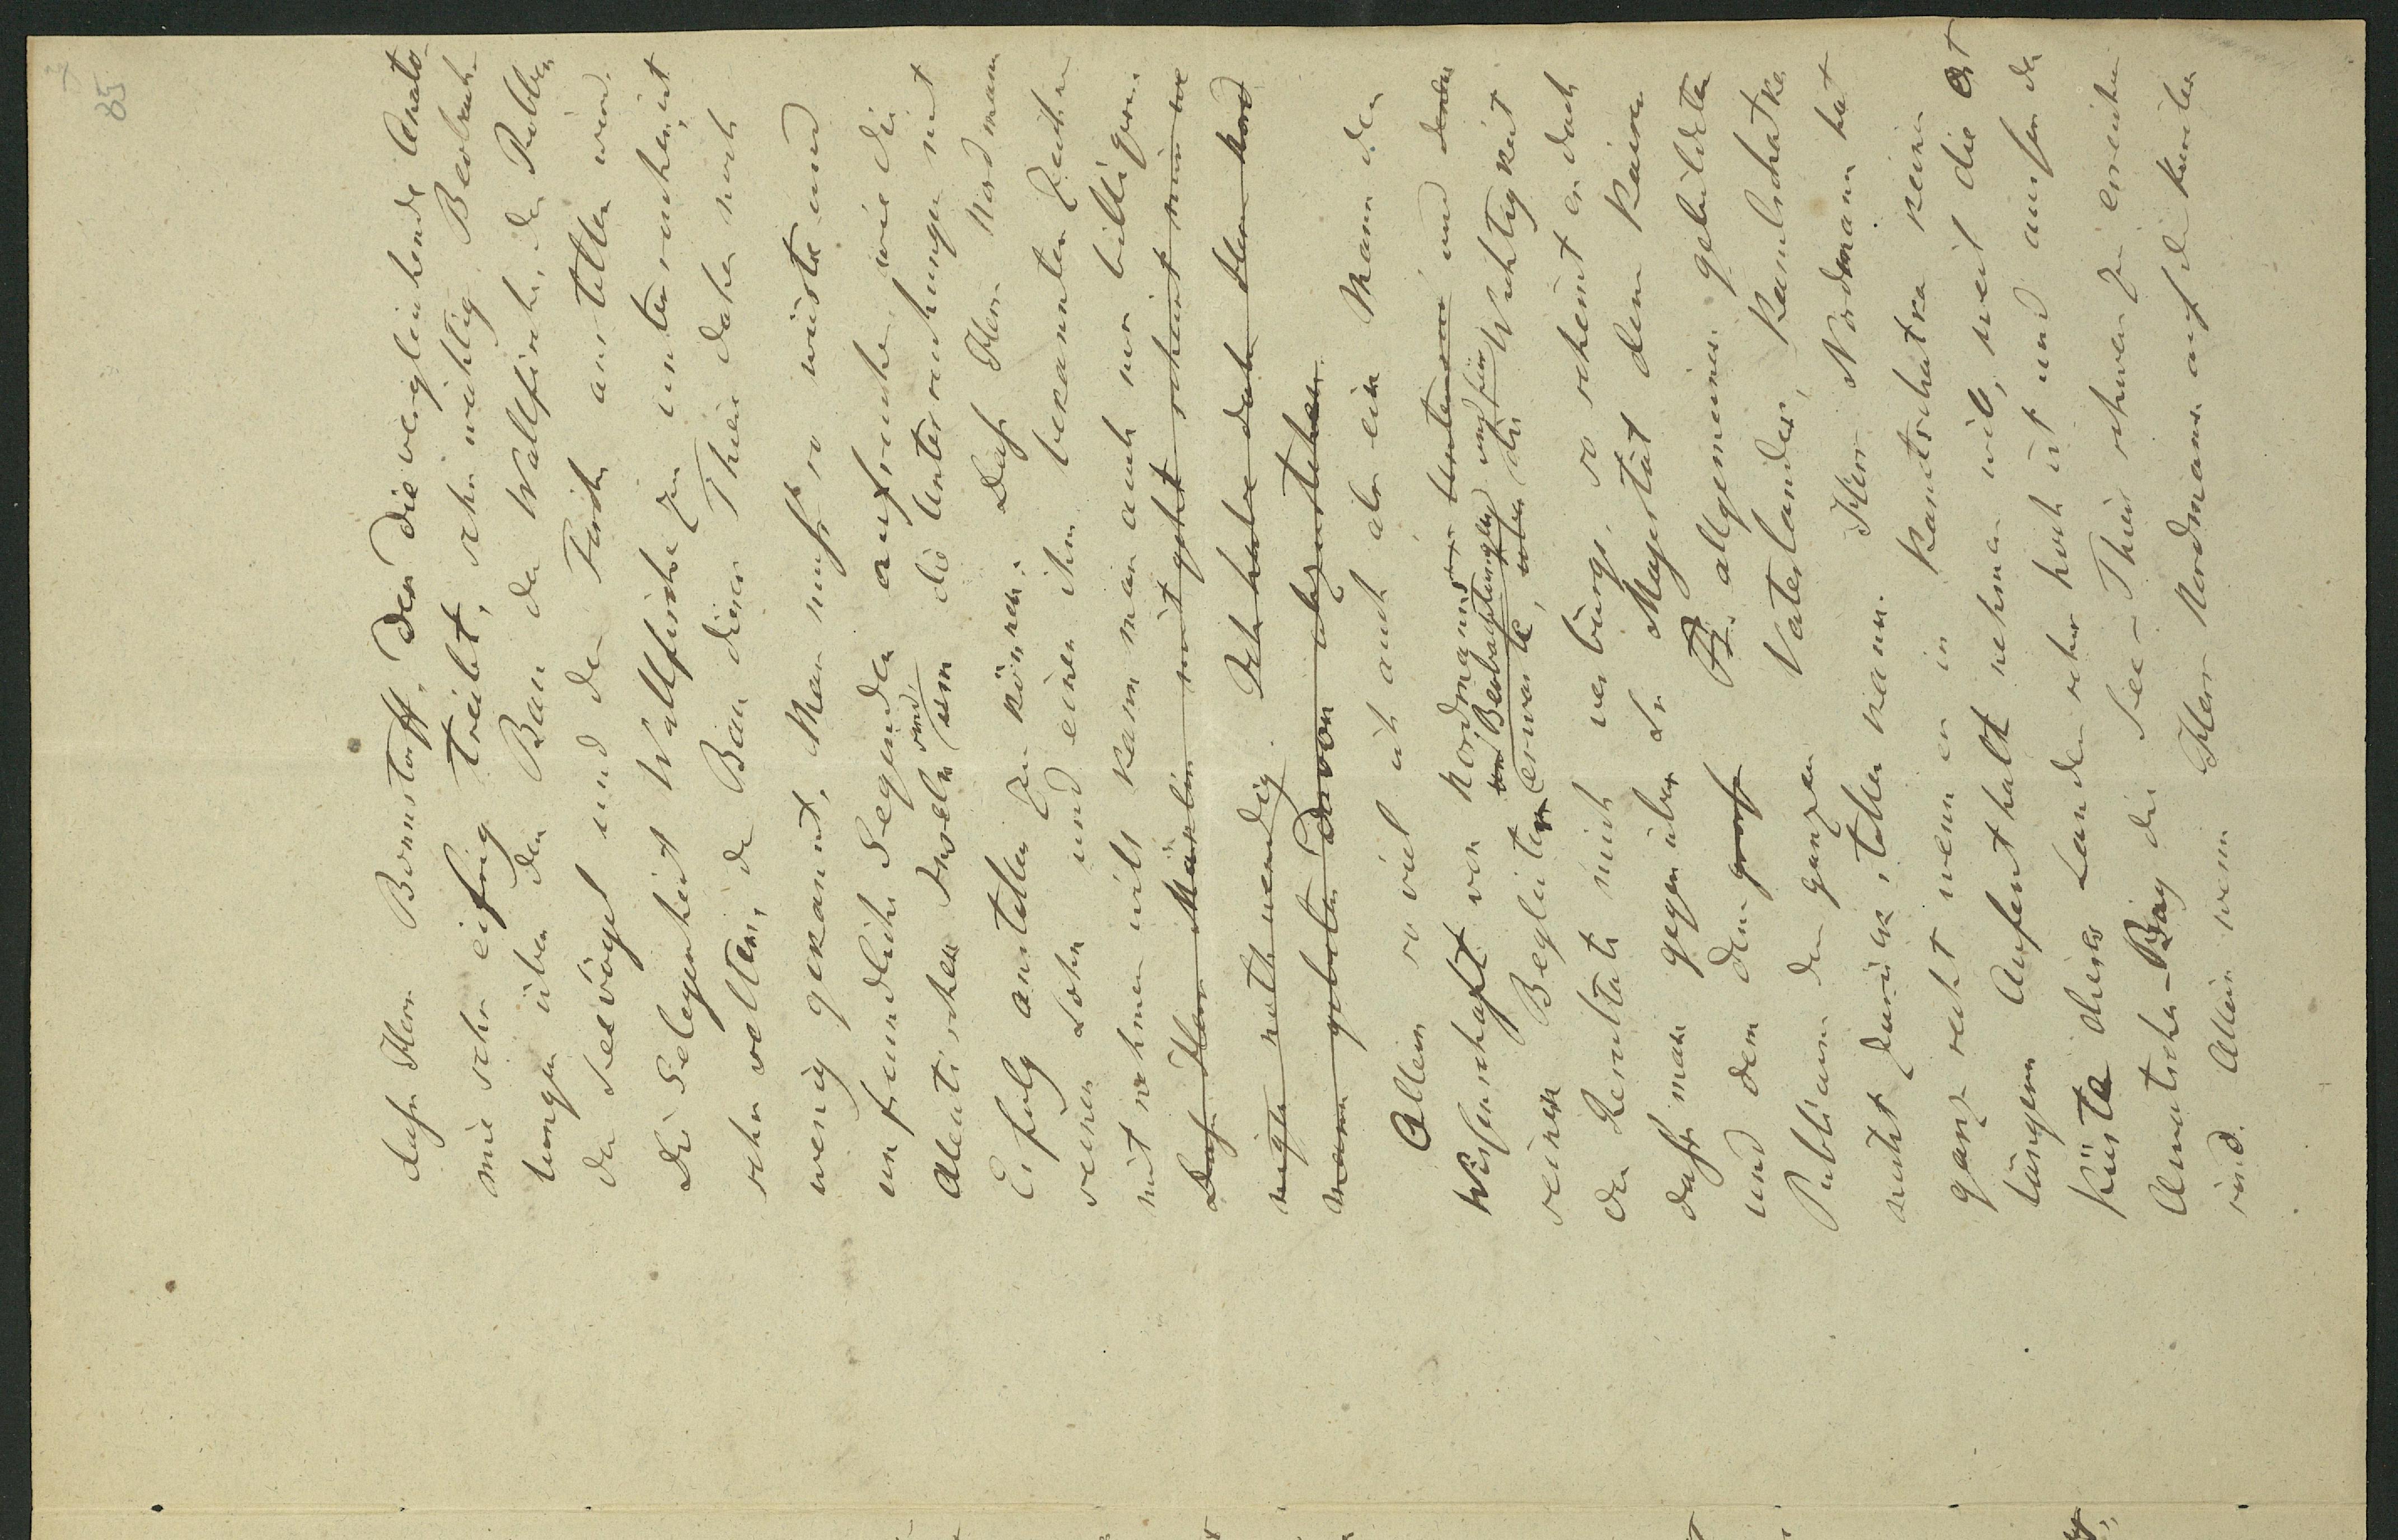 85
dass Herr Bornstorff, der die vergleichende Anato-
mie sehr eifrig treibt, sehr wichtig Beobach-
tungen über den Bau der Wallfische, der Robben
der Seevögel und der Fische anstellen wird.
Die Gelegenheit Wallfische zu untersuchen, ist
sehr selten, der Bau dieser Thiere daher noch
wenig gekannt. Man muss so wüste und
unfreundliche Gegenden aufsuchen, wie die
Aleutischen Inseln sind, um die Untersuchungen mit
Erfolg anstellen zu können. Dass Herr Nordmann
seinen Sohn und einen ihm bekannten Zeichner
mit nehmen will kann man auch nur billigen.
Dass Herr Märklin mit geht scheint mir we
niger nothwendig. Ich habe dah Herrn Nord
mann gebeten davon abzustehen.
Allein so viel ich auch als ein Mann der
Wissenschaft von Nordmanns und
und Beobachtungen und für
seinen Begleitern erwarte, die Wichtigkeit
der Resultate mich verbürge, so scheint es doch
dass man gegenüber Sr Majestät dem Kaiser
und dem dem gross P. allgemeinen gebildeten
Publicum des ganzen Vaterlandes, Kamtschatka
nicht zurück stellen kann. Herr Nordmann hat
ganz recht wenn er in Kamtschatka keinen
längern Aufenthalt nehmen will, weil die Ost
Küste dieses Landes sehr hoch ist und ausser der
Awatscha-Bay die See-Thiere schwer zu erreichen
sind. Allein wenn Herr Nordmann auf die